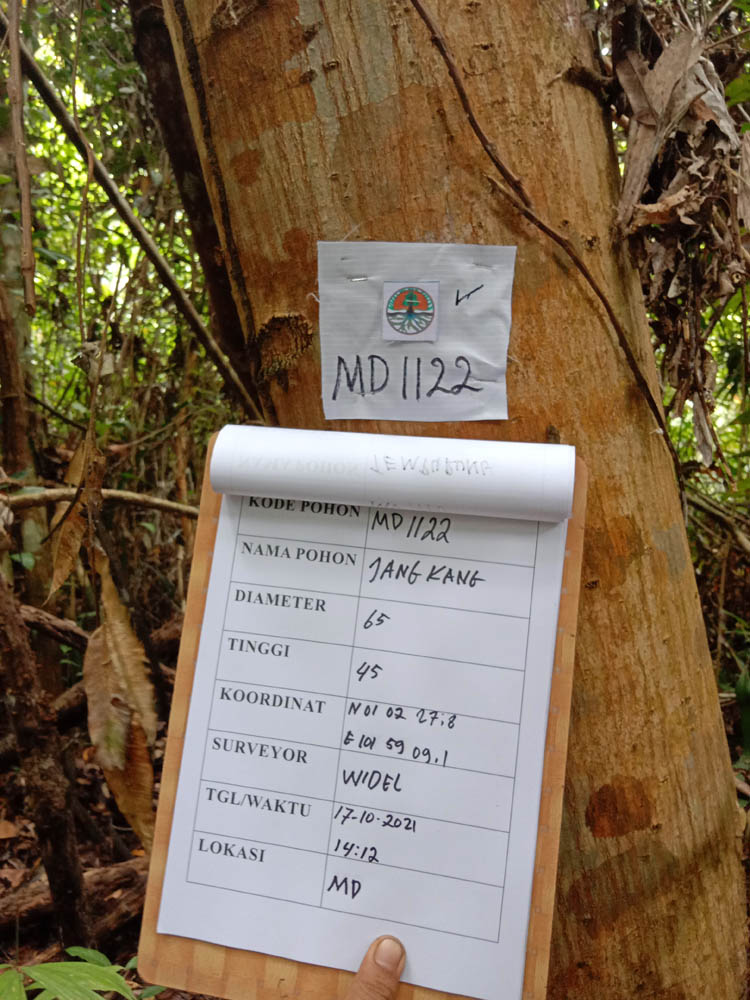 MD 1122
NAMA POHON
KODE POHON MD 1122
NAMA POHON JANGKANG
DIAMETER 65
TINGGI 45
KOORDINAT N 01 02 27.8
E 101 59 09.1
SURVEYOR WIDEL
TGL/WAKTU 17-10-2021
14:12
LOKASI MD